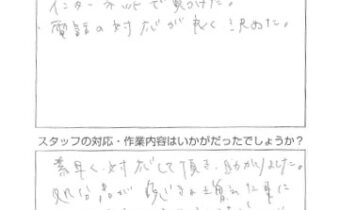 インターネットで見つけた。
・電話の対応が良く決めた。
スタッフの対応・作業内容はいかがだったでしょうか？
素早く対応して頂き、助かりました。
処分品が